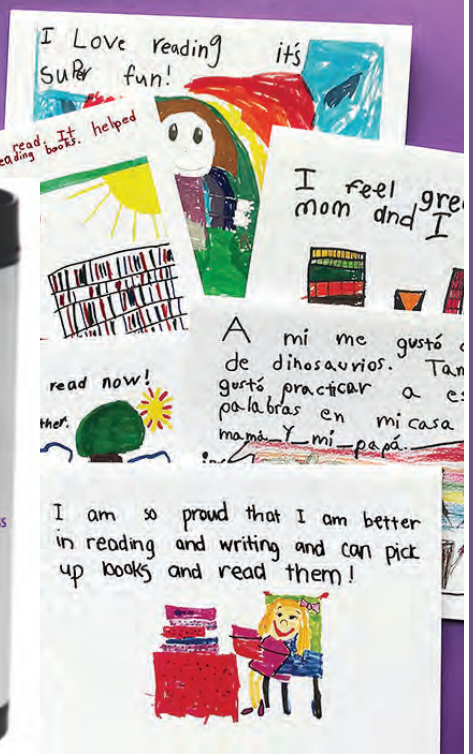 I Love reading it's
super fun!
read. It helped
reading books.
I feel
mom and I
A mí me gustó
de dinosaurios.
gustó practicar a
palabras en mi casa
mamá Y mi papá.
read now!
I am so proud that I am better
in reading and writing and can pick
up books and read them!